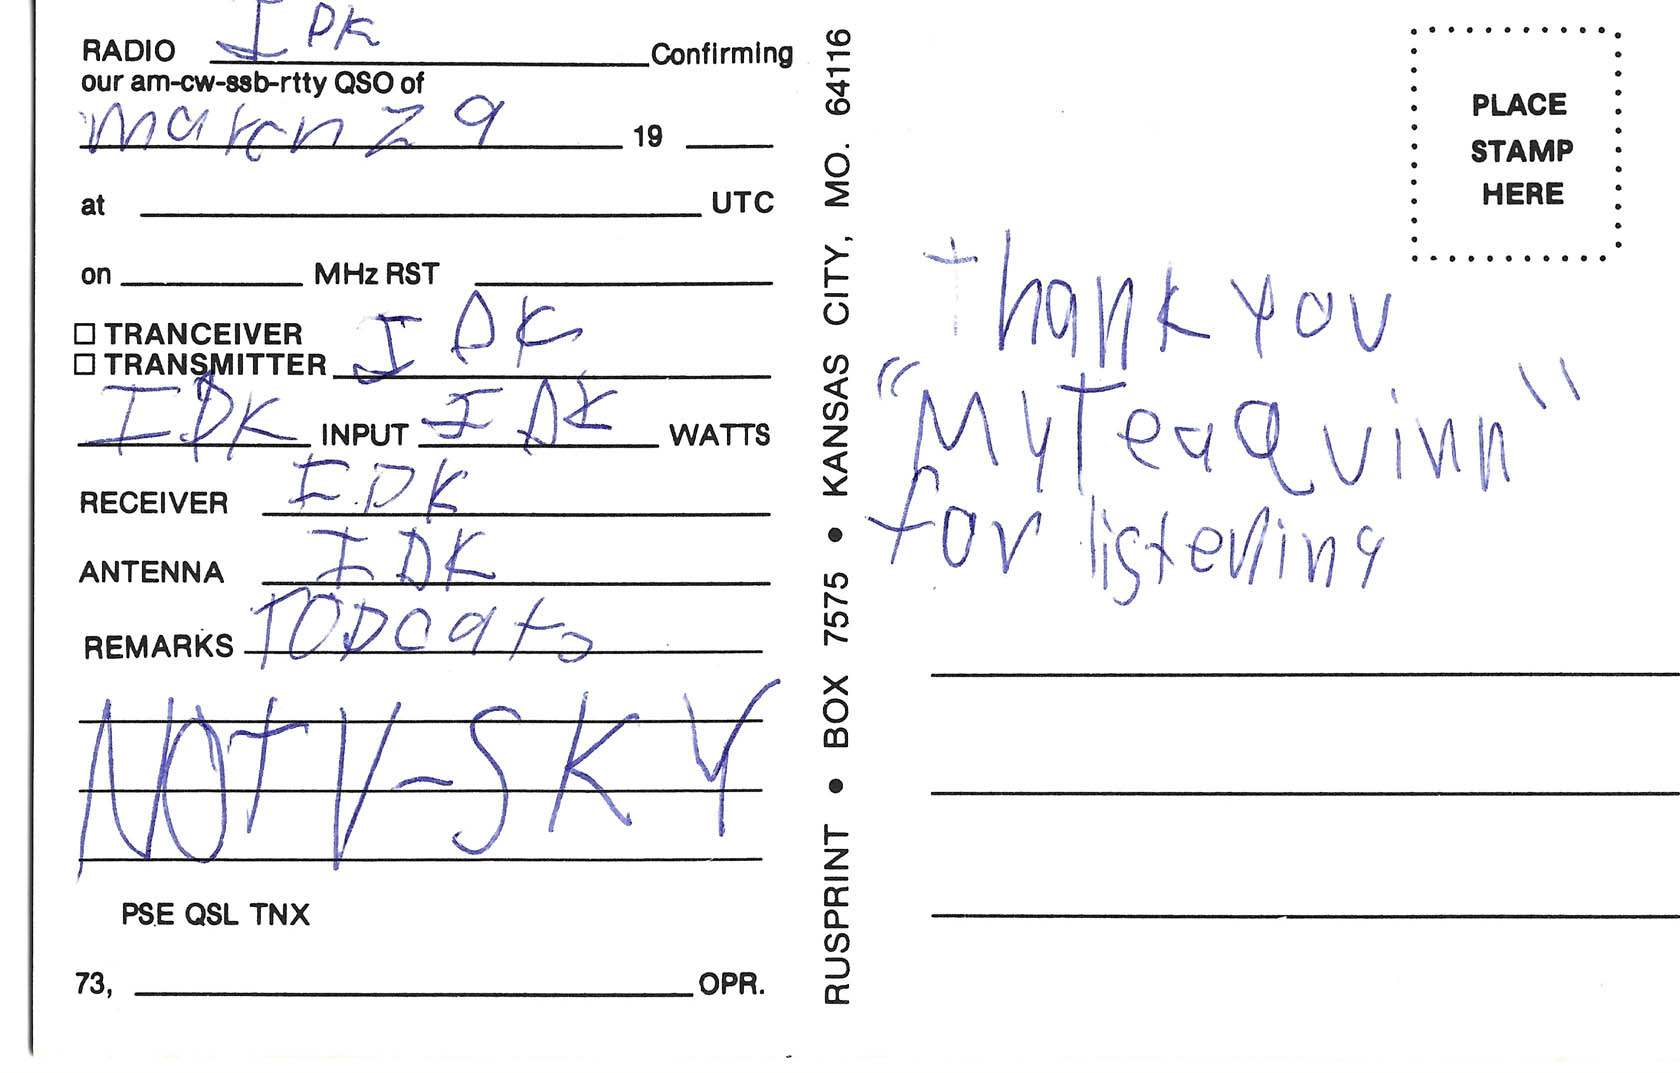 RADIO IDK Confirming
our am-cw-ssb-rtty QSO of
March 29 19
at UTC
on MHz RST
TRANCEIVER
TRANSMITTER IDK
IDK INPUT IDK WATTS
RECEIVER IDK
ANTENNA IDK
REMARKS TODCAT
NOT V-SKY
PSE QSL TNX
73, OPR.
RUSPRINT • BOX 7575 • KANSAS CITY, MO. 64116
PLACE
STAMP
HERE
Thank you
"MyTeaQuinn"
for listening